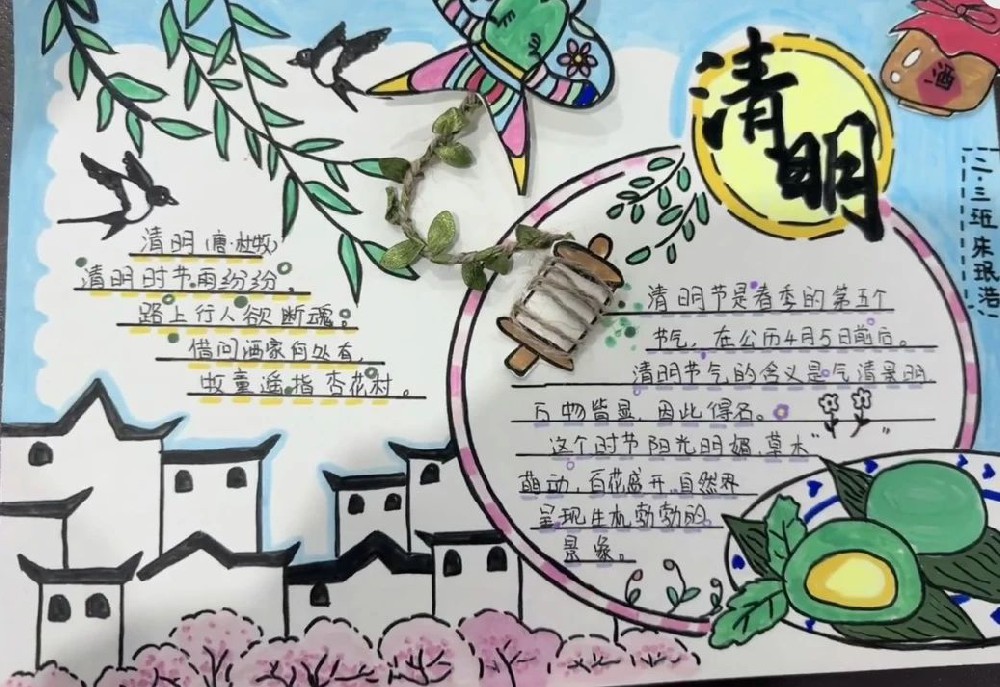 清明
酒
二.三班 朱珉浩
清明(唐·杜牧)
清明时节雨纷纷,
路上行人欲断魂。
借问酒家何处有,
牧童遥指杏花村。
清明节是春季的第五个
节气,在公历4月5日前后。
清明节气的含义是气清景明
万物皆显,因此得名。
这个时节阳光明媚,草木
萌动,百花盛开,自然界
呈现生机勃勃的
景象。